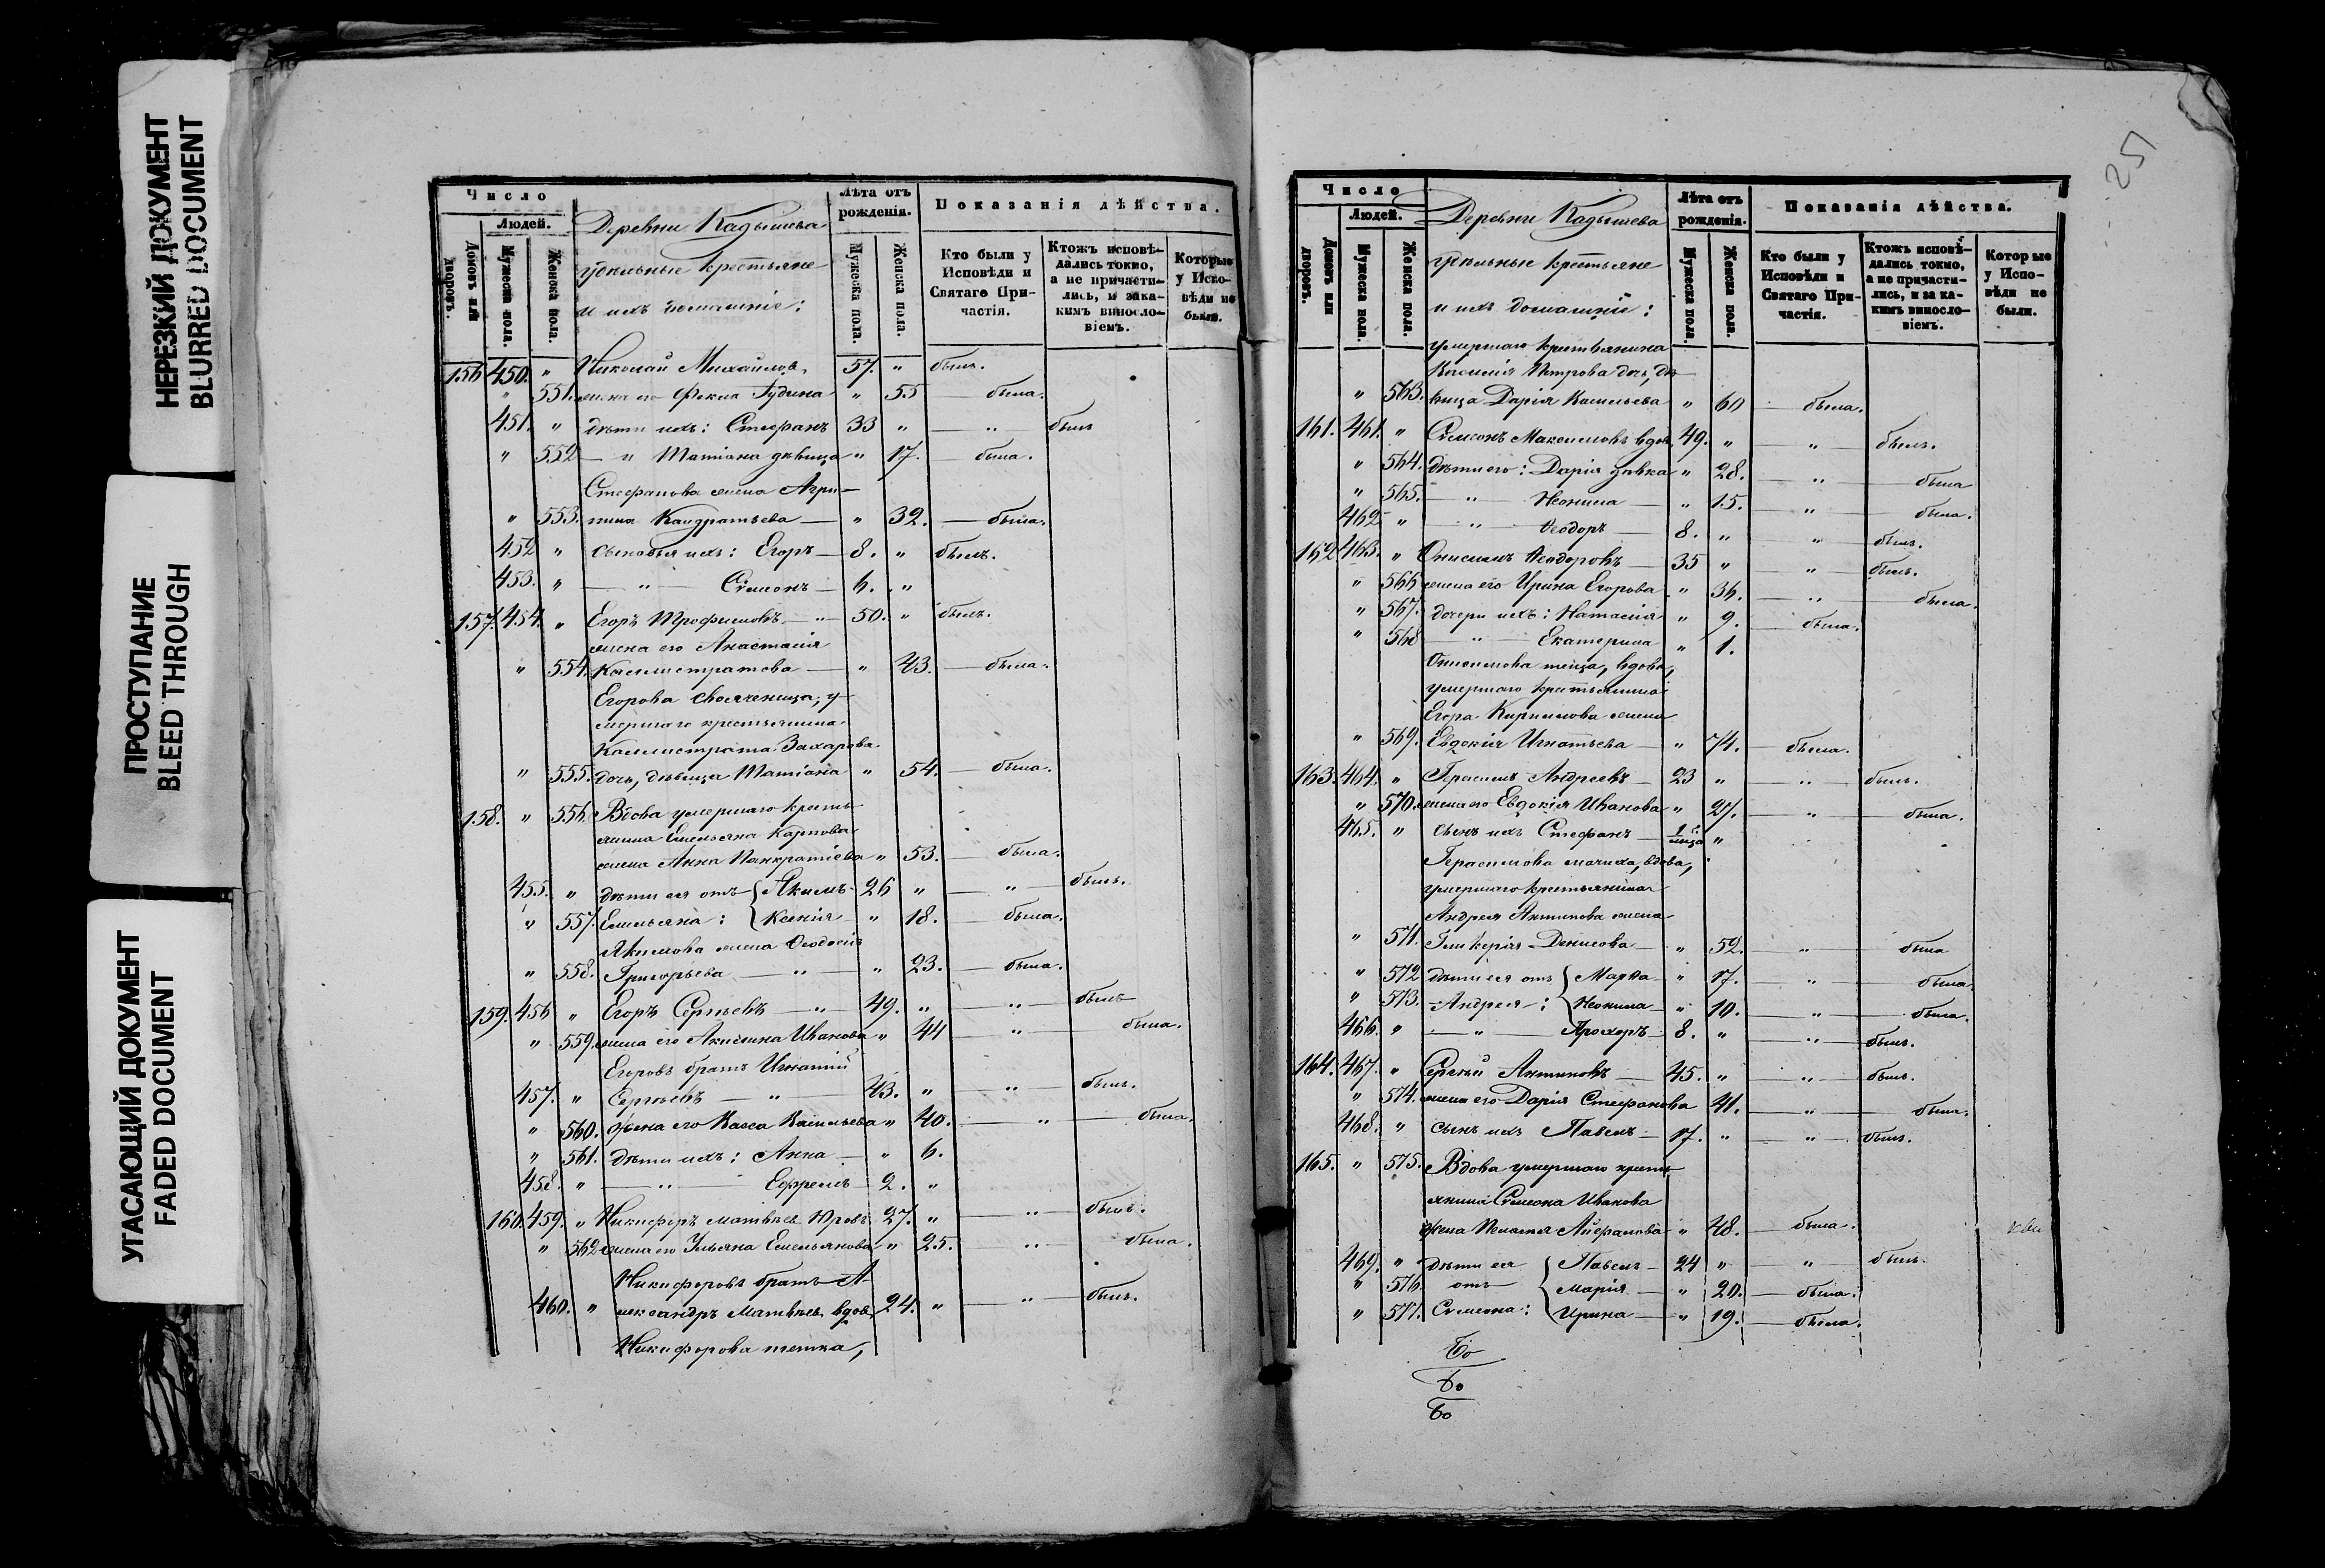 НЕРЕЗКИЙ ДОКУМЕНТ
BLURRED DOCUMENT
ПРОСТУПАНИЕ
BLEED THROUGH
УГАСАЮЩИЙ ДОКУМЕНТ
FADED DOCUMENT
Число
Людей.
Домовъ или дворовъ.
Мужеска пола.
Женска пола.
Деревни Кадышева
удѣльные крестьяне
и ихъ домашніе:
Лѣта отъ рожденія.
Мужеска пола.
Женска пола.
Показанія дѣйства.
Кто были у Исповѣди и Святаго Причастія.
Ктожъ исповѣдались токмо, а не причастились, и закакимъ винословіемъ.
Которые у Исповѣди не были.
156 450. " Николай Михайловъ 57. " былъ.
" 551. жена его Фекла Гудина " 55 была.
451. " дѣти ихъ: Стефанъ 33 " " былъ
" 552 — " Татіана дѣвица " 17. была.
Стефанова жена Агри-
" 553. пина Кандратьева — " 32. — была.
452 " сыновья ихъ: Егоръ — 8. " былъ.
453. " — " — Сѵмеонъ — 6. "
157. 454. " Егоръ Трофимовъ — " 50. " былъ.
жена его Анастасія
" 554. Каллистратова — " 43. — была.
Егорова своячница, у-
мершаго крестьянина
Каллистрата Захарова
" 555. дочь, дѣвица Татіана " 54. — была.
158. " 556. Вдова умершаго кресть-
янина Емельяна Карпова
жена Анна Панкратіева " 53. — была.
455. " дѣти ея отъ { Акимъ 26 " — " — былъ.
" 557. Емельяна: { Ксенія " 18. — была.
Акимова жена Ѳеодосія
" 558. Григорьева — " — " 23. — была.
159. 456 " Егоръ Сергѣевъ — " 49. " — " — былъ
" 559. жена его Акилина Иванова " 44 " была.
Егоровъ братъ Игнатій
457. " Сергѣевъ — " — 43. " — " — былъ.
" 560. жена его Васса Васильева " 40. — " — была.
" 561. дѣти ихъ: Анна — " 6.
458. " — " — Ефремъ 2. "
160. 459. " Никифоръ Матвѣевъ Юровъ 27. " — " — былъ.
" 562 жена его Ульяна Емельянова " 25. " была.
Никифоровъ братъ А-
460. " лександръ Матвѣевъ вдов. 24. " — " — былъ.
Никифорова тетка,
25
Число
Людей.
Домовъ или дворовъ.
Мужеска пола.
Женска пола.
Деревни Кадышева
удѣльные крестьяне
и ихъ домашніе:
Лѣта отъ рожденія.
Мужеска пола.
Женска пола.
Показанія дѣйства.
Кто были у Исповѣди и Святаго Причастія.
Ктожъ исповѣдались токмо, а не причастились, и за какимъ винословіемъ.
Которые у Исповѣди не были.
умершаго крестьянина
Василія Петрова дочь, дѣ-
" 563. вица Дарія Васильева " 60 — была.
161. 461. " Сѵмеонъ Максимовъ вдов. 49. " " былъ.
" 564. дѣти его: Дарія дѣвка " 28. — " — была
" 565. — " — Неонила — " 15. " была.
462 " — " — Ѳеодоръ — 8. " " былъ.
162 463. " Онисимъ Ѳеодоровъ — 35 " — " былъ.
" 566 жена его Ирина Егорова " 36. — " — была.
" 567. дочери ихъ: Наталія " 9. — была.
" 568 — " — Екатерина " 1.
Онисимова теща, вдова,
умершаго крестьянина
Егора Кириллова жена
" 569. Евдокія Игнатьева — " 74. — была.
163. 464. " Герасимъ Андреевъ — 23 " — " — былъ.
" 570. жена его Евдокія Иванова " 27. — " — была.
465. " сынъ ихъ Стефанъ "
Герасимова мачиха, вдова,
умершаго крестьянина
Андрея Антипова жена
" 571. Гликерія Денисова — " 52. — " — была
" 572 дѣти ея отъ { Марѳа " 17. — " — была.
" 573. Андрея: { Неонила — " 10. — " — была.
466. " — " — Прохоръ 8. " — " — былъ.
164. 467. " Сергѣй Антиповъ — 45. " — " — былъ.
" 574. жена его Дарія Стефанова 41. — " — была.
468. " сынъ ихъ Павелъ — 17. " — " — былъ.
165. " 575. Вдова умершаго кресть-
янина Сѵмеона Иванова
жена Пелагея " 48. — была.
469. " дѣти ея { Павелъ — 24 " " былъ.
" 576. отъ { Марія — " 20. — была.
" 577. Сѵмеона: { Ирина — " 19. — была.